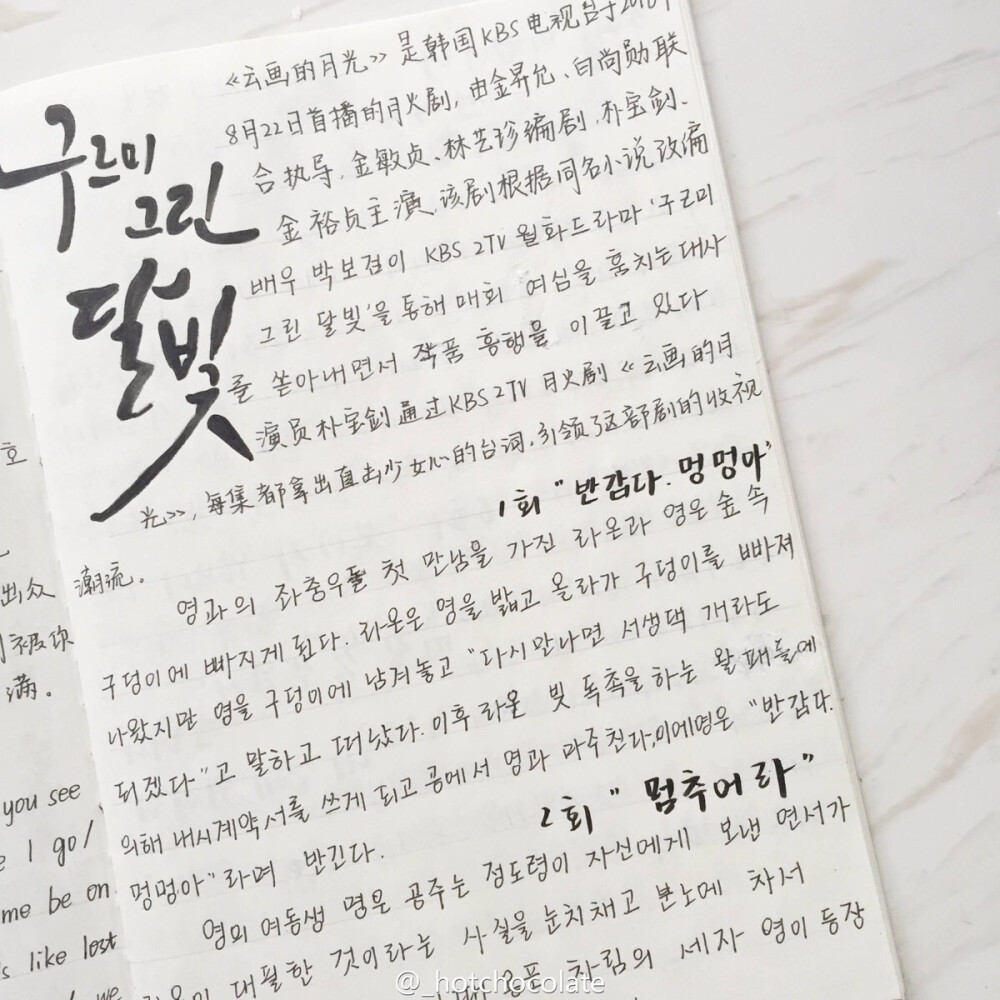 구르미
그린
달빛
《云画的月光》是韩国KBS电视台于2016年
8月22日首播的月火剧，由金昇允、白尚勋联
合执导，金敏贞、林艺珍编剧，朴宝剑、
金裕贞主演，该剧根据同名小说改编
배우 박보검이 KBS 2TV 월화드라마 '구르미
그린 달빛'을 통해 매회 여심을 훔치는 대사
를 쏟아내면서 작품 흥행을 이끌고 있다
演员朴宝剑通过KBS 2TV 月火剧《云画的月
光》，每集都拿出直击少女心的台词，引领了这部剧的收视
潮流。
1회 "반갑다. 멍멍아"
영과의 좌충우돌 첫 만남을 가진 라온과 영은 숲 속
구덩이에 빠지게 된다. 라온은 영을 밟고 올라가 구덩이를 빠져
나왔지만 영을 구덩이에 남겨놓고 "다시 만나면 서생댁 개라도
되겠다"고 말하고 떠났다. 이후 라온 빚 독촉을 하는 왈패들에
의해 내시계약서를 쓰게 되고 궁에서 영과 마주친다, 이에 영은 "반갑다.
멍멍아"라며 반긴다.
2회 "멈추어라"
영의 여동생 명은 공주는 정도령이 자신에게 보낸 연서가
대필한 것이라는 사실을 눈치채고 분노에 차서
차림의 세자 영이 등장
出众
被你
满。
you see
I go/
me be on
like lost
@_hotchocolate